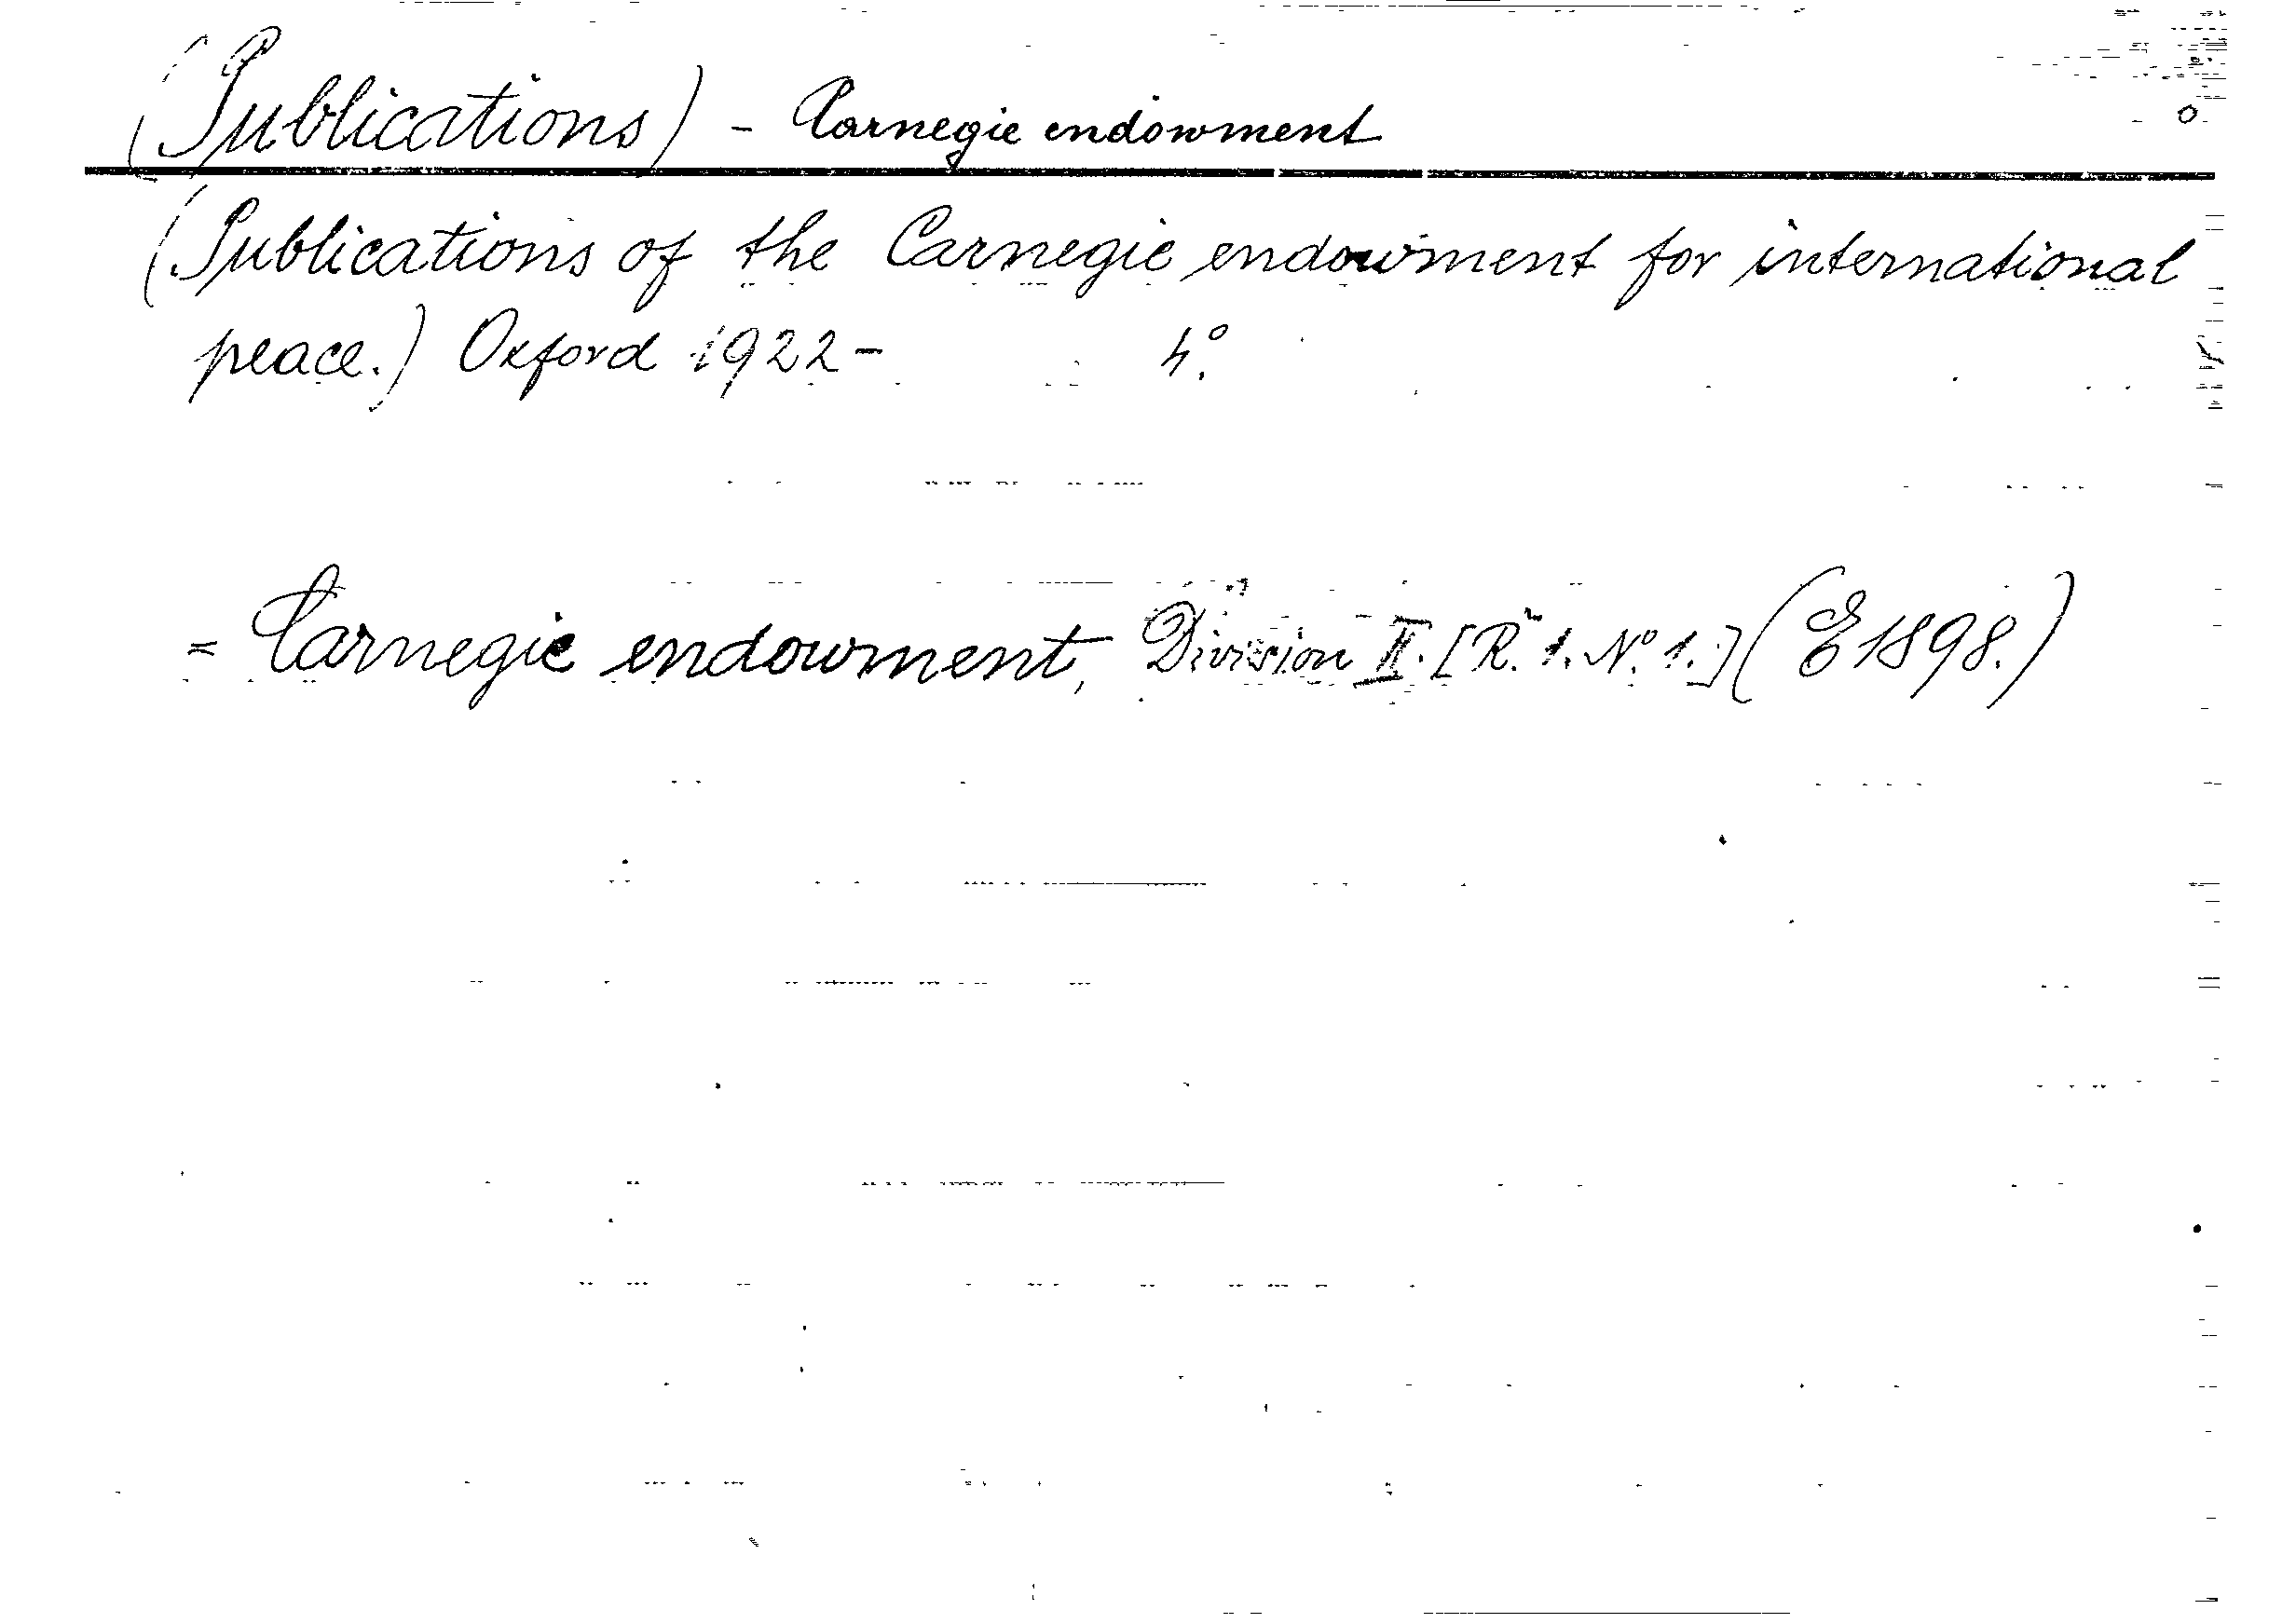 (Publications) - Carnegie endowment
(Publications of the Carnegie endowment for international
peace.) Oxford 1922- 4°.
= Carnegie endowment, Division II. [R. 1. N° 1.] (E 1898.)